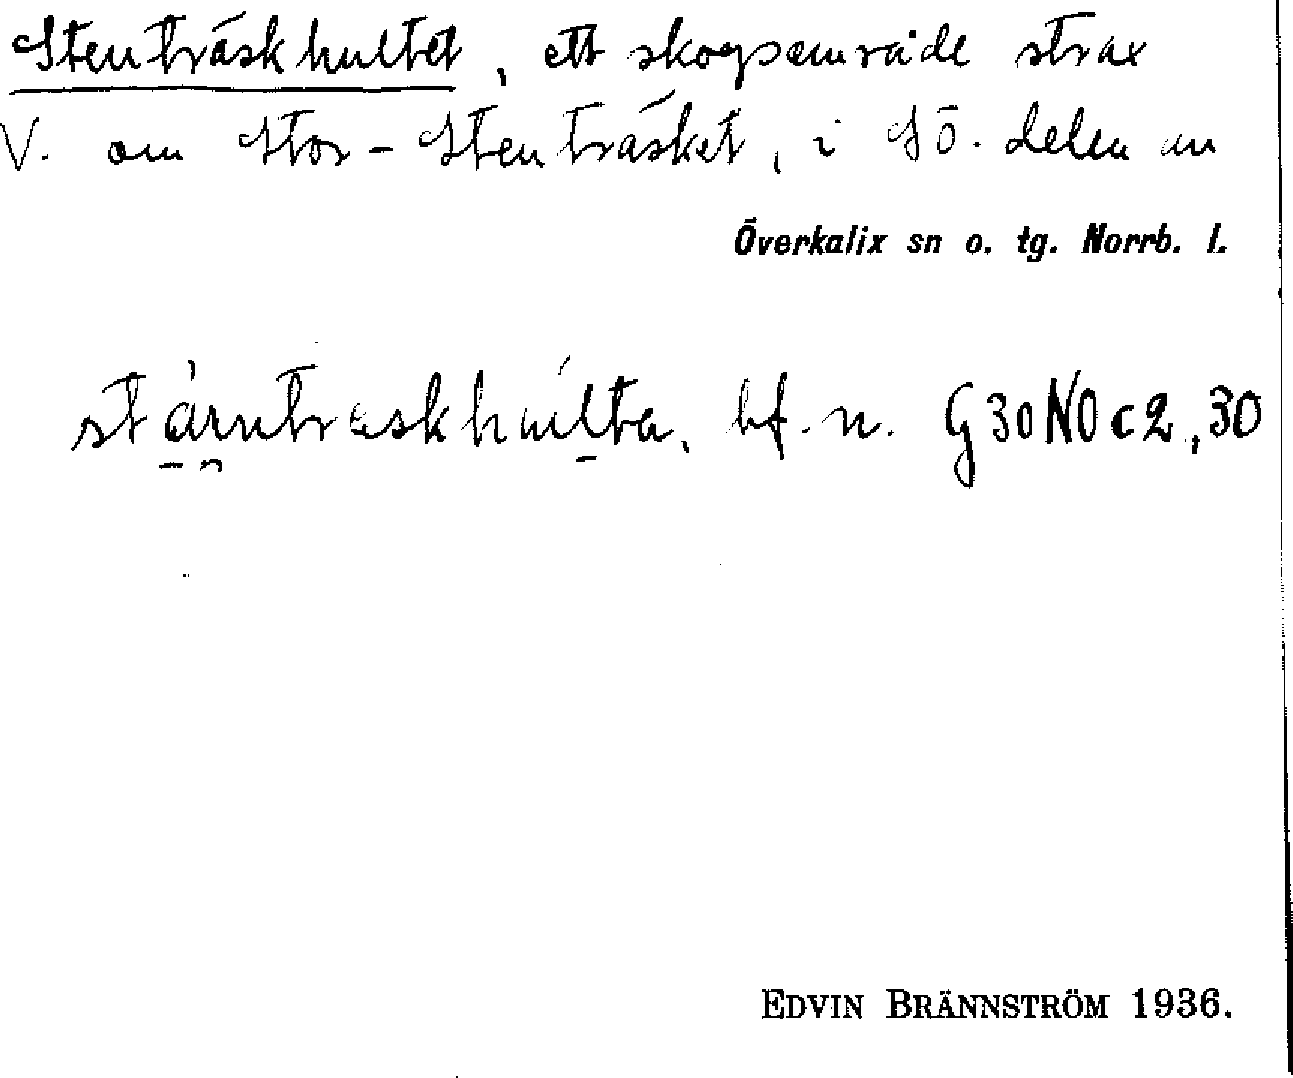 Stenträskhultet, ett skogsområde strax
V. om Stor-Stenträsket, i SÖ. delen av
Överkalix sn o. tg. Norrb. l.
bf. n. G30NOc2,30
EDVIN BRÄNNSTRÖM 1936.